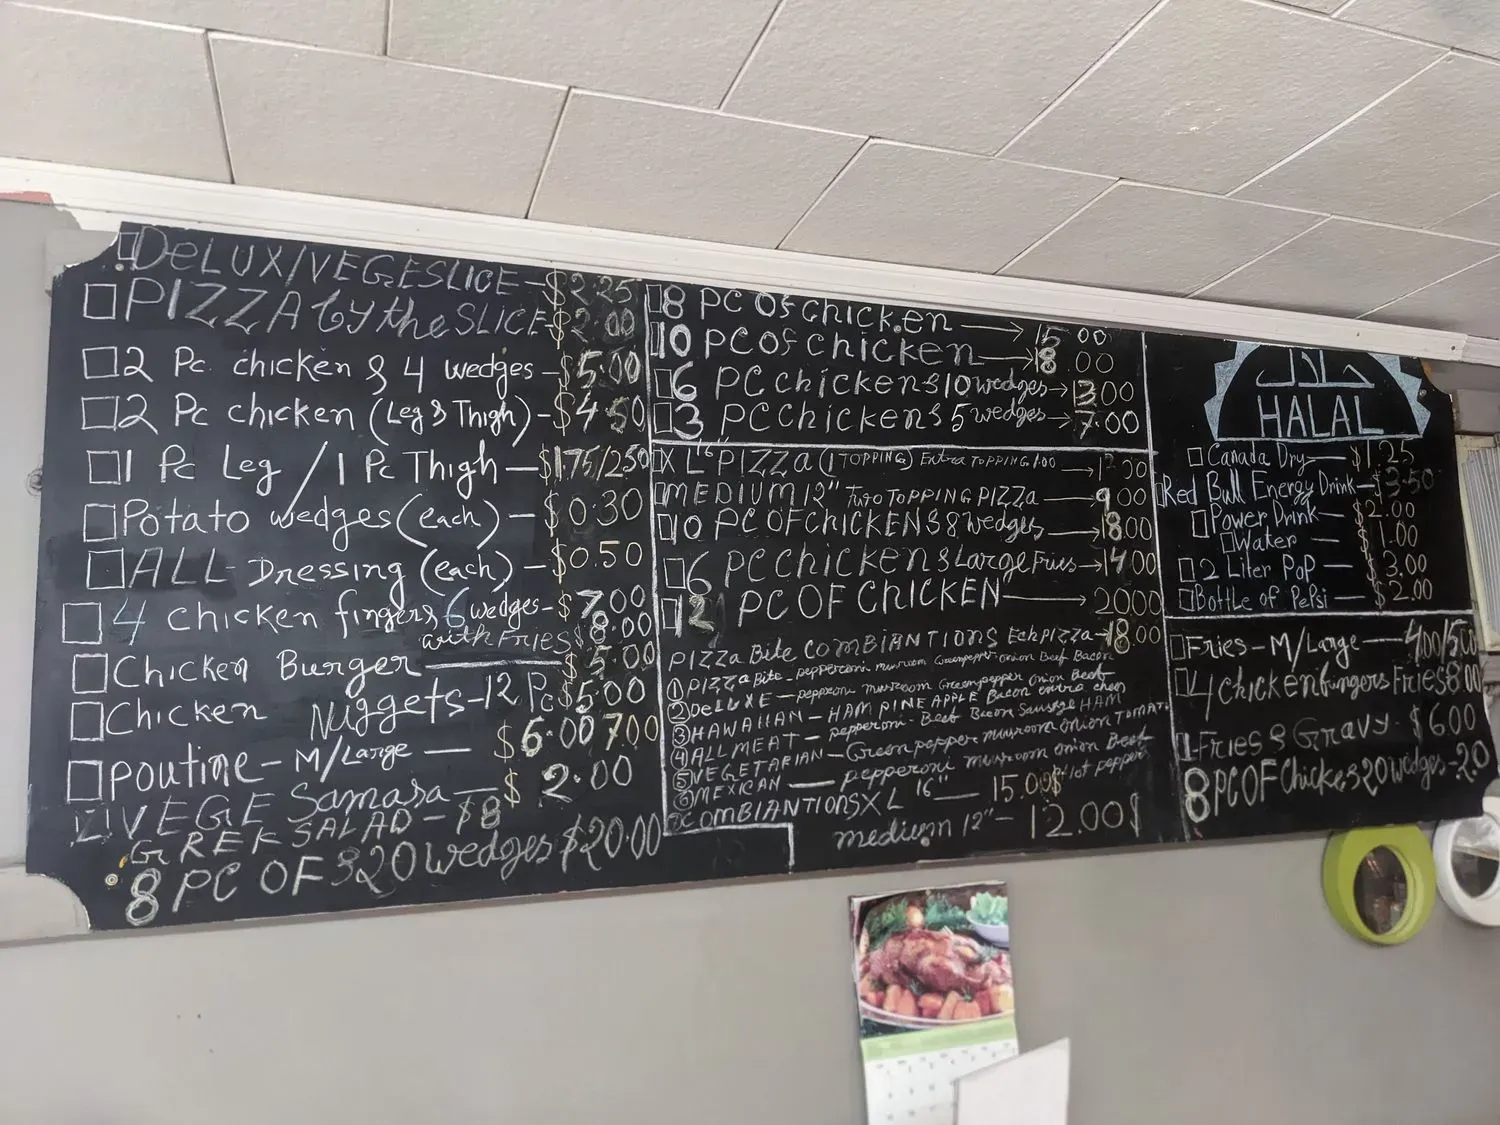 DeLUX/VEGESLICE-$2.25
PIZZA by the SLICE-$2.00
2 Pc. chicken & 4 wedges-$5.00
2 Pc chicken (Leg & Thigh)-$4.50
1 Pc Leg / 1 Pc Thigh-$175/250
Potato wedges (each)-$0.30
ALL Dressing (each)-$0.50
4 chicken fingers 6 wedges-$7.00
with FRIES $8.00
Chicken Burger — $5.00
Chicken Nuggets-12 Pc $5.00
poutine-M/Large — $6.00 700
VEGE Samasa — $2.00
GREK SALAD-$8
8 PC OF &20 wedges $20.00
8 PC Of chicken → 15.00
10 PC Of chicken → 18.00
6 PC chicken &10 wedges→13.00
3 PC chicken & 5 wedges→7.00
XL 16" PIZZa (1 TOPPING) Extra TOPPING 1.00 →
MEDIUM 12" Two TOPPING PIZZa → 9.00
10 PC OF ChICKEN & 8 wedges→18.00
6 PC Chicken & Large Fries→14.00
12 PC OF ChICKEN → 2000
PIZZa Bite COMBIANTIONS EchPIZZa→18.00
① PIZZa Bite-pepperoni musroom Greenpepper onion Beef Bacon
② DeLUXE-pepproni musroom Greenpepper onion Beef
③ HAWAIIAN-HAM PINEAPPLE Bacon extra chees
④ ALL MEAT-pepperoni-Beef Bacon Sausage HAM
⑤ VEGETARIAN-Green pepper musroom onion TOMATO
⑥ MEXICAN — pepperoni musroom onion Beef
Hot pepper
⑦ COMBIANTIONS XL 16" — 15.00$
medium 12"-12.00$
حلال
HALAL
Canada Dry — $1.25
Red Bull Energy Drink-$3.50
Power Drink — $2.00
Water — $1.00
2 Liter PoP — $3.00
Bottle of Pepsi — $2.00
Fries-M/Large — 400/500
4 Chickenfingers Fries 8.00
Fries & Gravy-$6.00
8 PC OF Chicke & 20 wedges-20